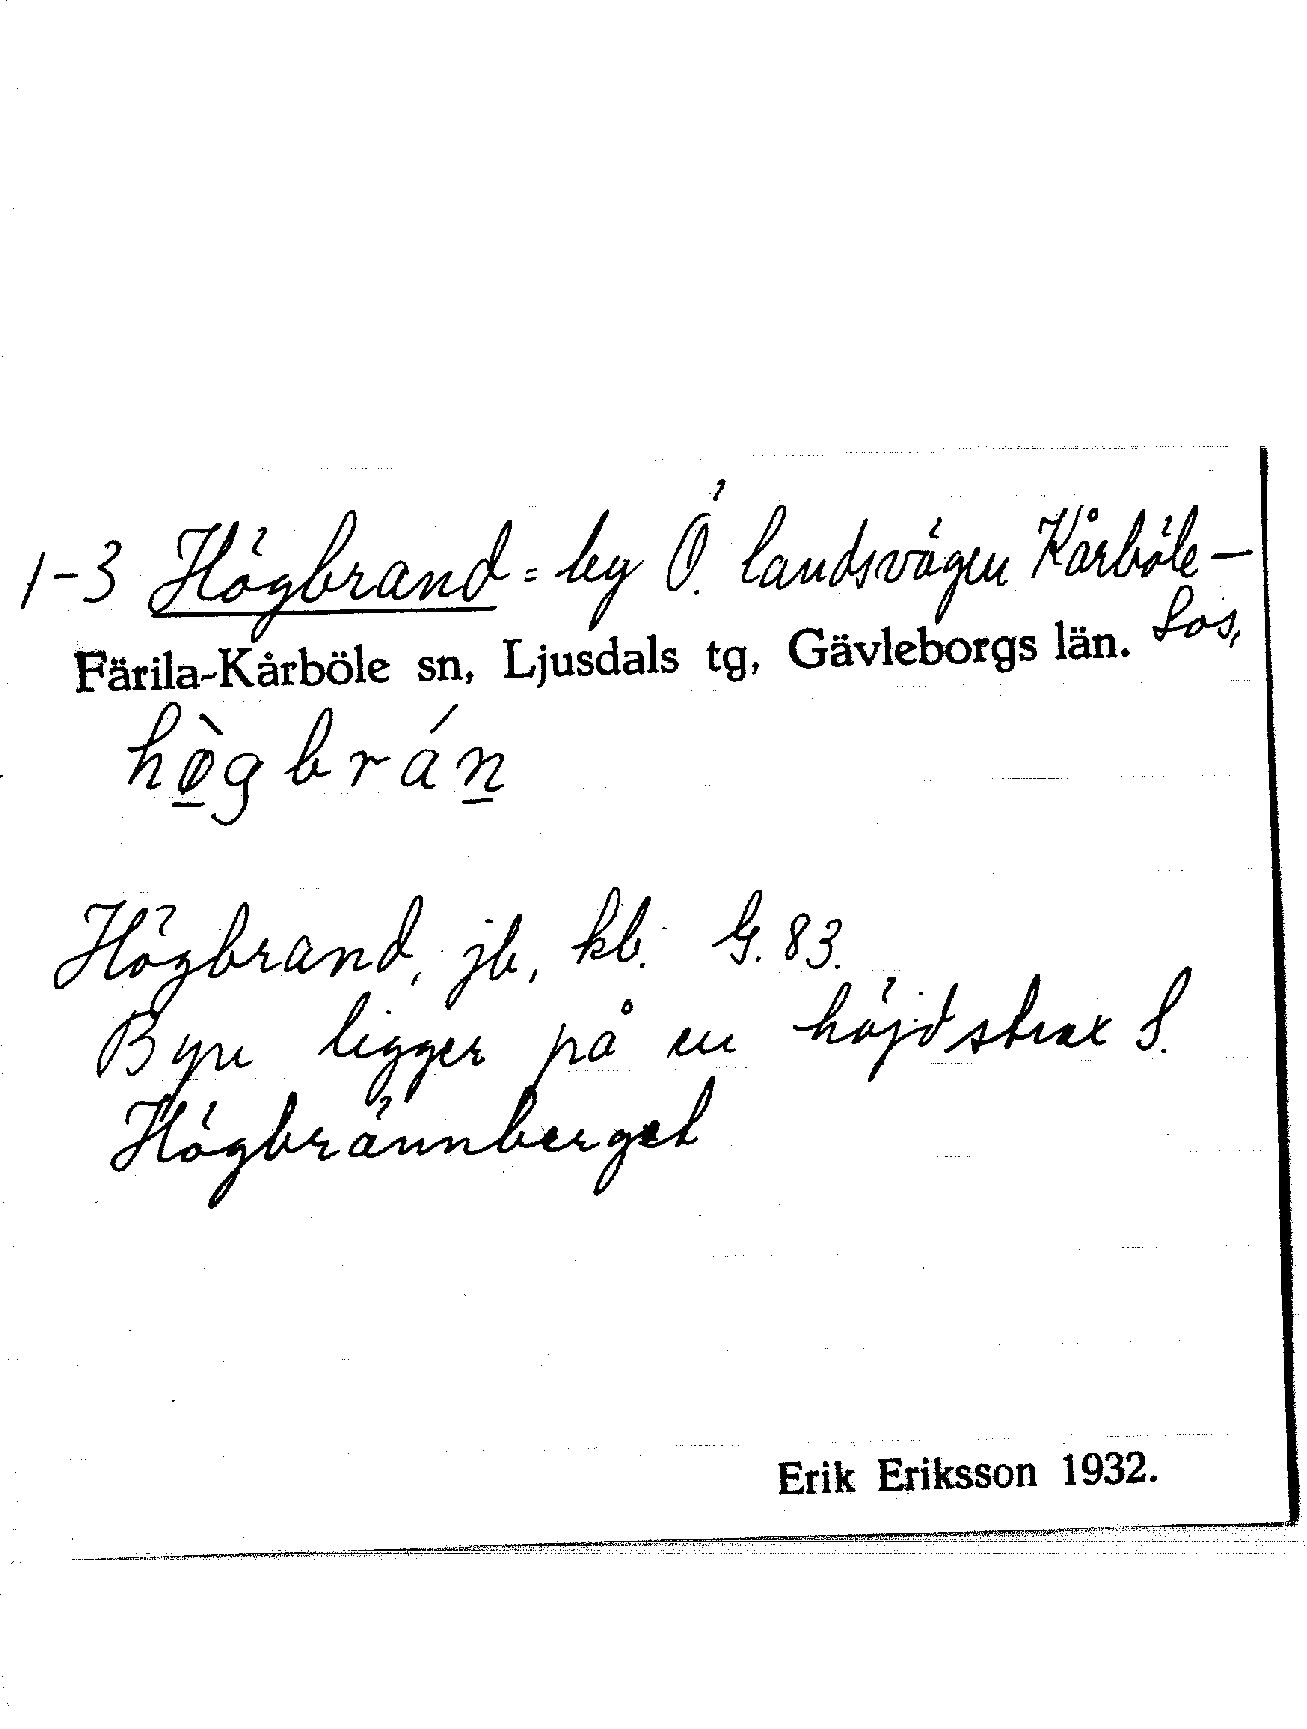 1-3 Högbrand = by Ö. landsvägen Kårböle-
Los,
Färila-Kårböle sn, Ljusdals tg, Gävleborgs län.
hø̀gbrán
Högbrand, jb, kb. G. 83.
Byn ligger på en höjd strax S.
Högbrännberget
Erik Eriksson 1932.